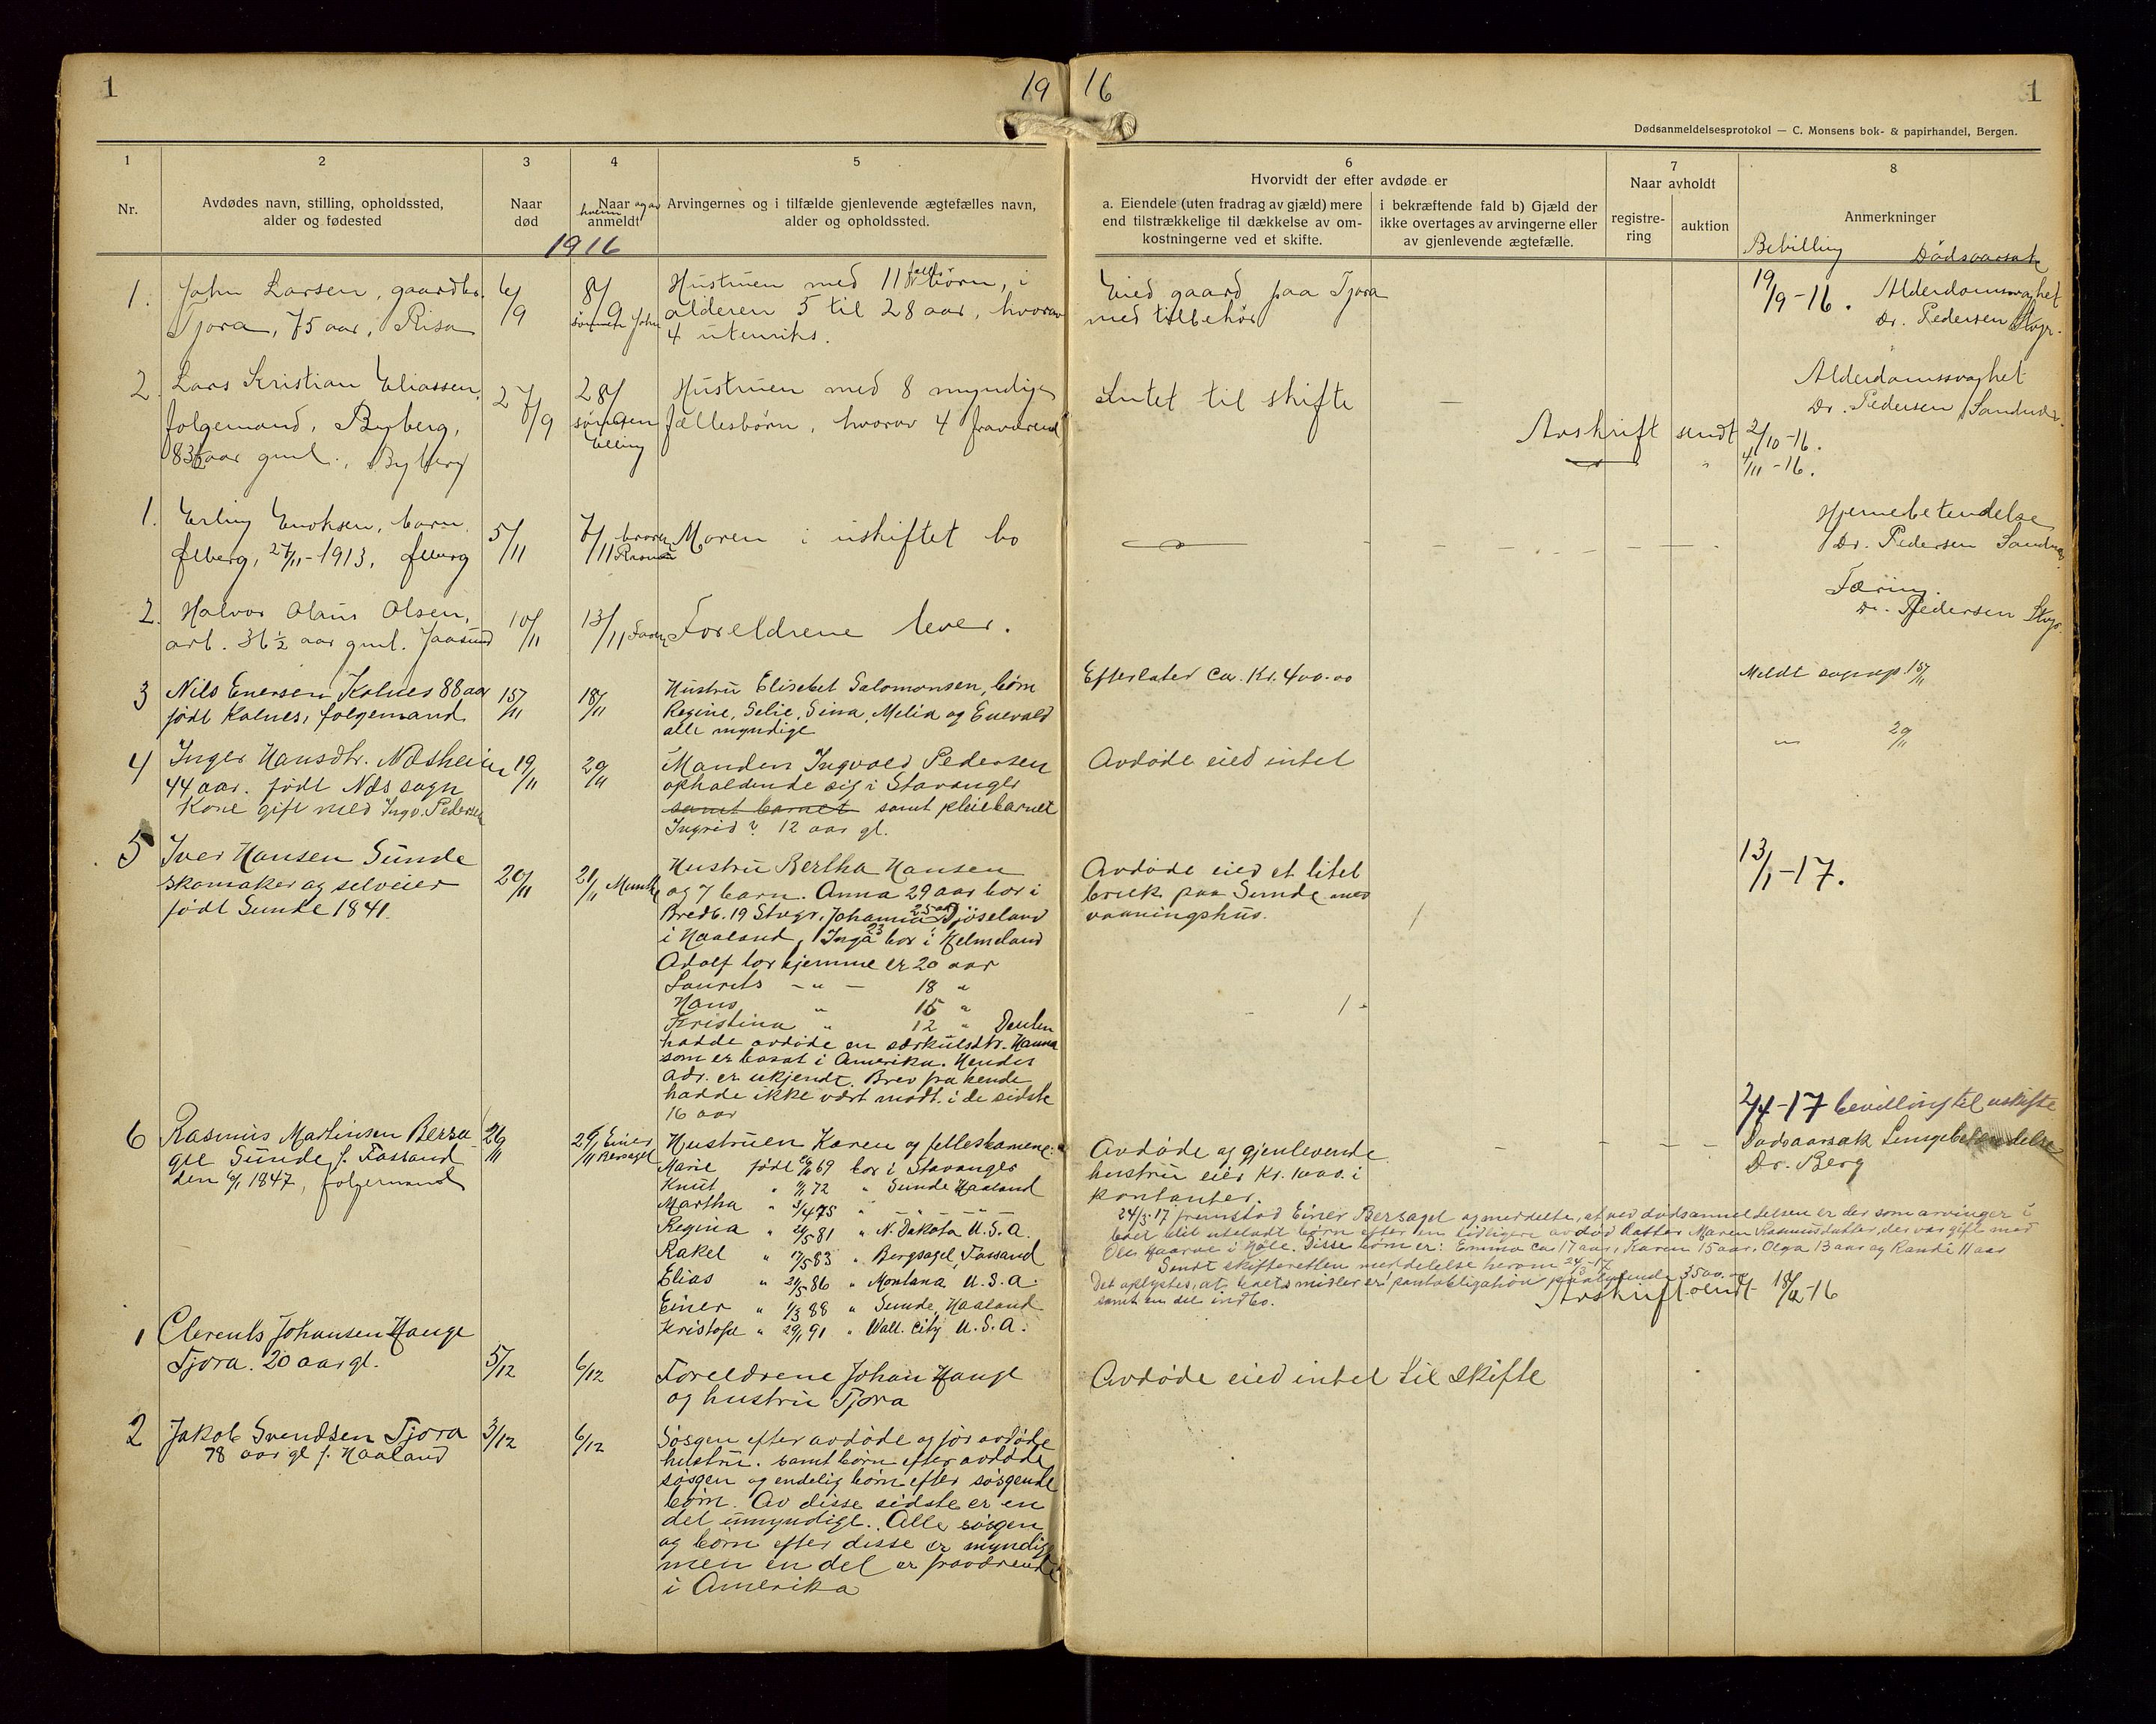 1
19
16
1
Dødsanmeldelsesprotokol — C. Monsens bok- & papirhandel, Bergen.
1
2
3
4
5
6
7
8
Nr.
Avdødes navn, stilling, opholdssted,
alder og fødested
Naar
død
Naar og av
hvem
anmeldt
Arvingernes og i tilfælde gjenlevende ægtefælles navn,
alder og opholdssted.
Hvorvidt der efter avdøde er
a. Eiendele (uten fradrag av gjæld) mere
end tilstrækkelige til dækkelse av om-
kostningerne ved et skifte.
i bekræftende fald b) Gjæld der
ikke overtages av arvingerne eller
av gjenlevende ægtefælle.
Naar avholdt
registre-
ring
auktion
Anmerkninger
Bevilling Dødsaarsak
1916
1. John Larsen, gaardbr.
Tjora, 75 aar, Risa
6/9
8/9
sønnen John
Hustruen med 11 fælles børn, i
alderen 5 til 28 aar, hvorav
4 utenriks.
Eied gaard paa Tjora
med tilbehør
19/9-16.
Alderdomssvaghet
Dr. Pedersen Stvgr.
2. Lars Kristian Eliassen,
folgemand, Byberg,
83 aar gml., Byberg
27/9
28/9
sønnen
Elling
Hustruen med 8 myndige
fællesbørn, hvorav 4 fraværend
Intet til skifte —
Alderdomssvaghet
Dr. Pedersen, Sandnes.
Avskrift sendt 2/10-16.
" 4/11-16.
1. Erling Enoksen, barn,
Ølberg, 27/11-1913, Ølberg
5/11
7/11 broren
Rasmus
Moren i uskiftet bo
Hjernebetendelse
Dr. Pedersen Sandnes
2. Halvor Olaus Olsen,
arb. 36½ aar gml. Jaasund
10/11
13/11 Faren
Foreldrene lever.
Tæring.
Dr. Pedersen Stvgr.
3 Nils Enersen Kolnes 88 aar
født Kolnes, folgemand
15/11
18/11
Hustru Elisebet Salomonsen, børn
Regine, Selie, Sina, Melia og Enevald
alle myndige
Efterlater ca. Kr. 400.00
Meldt sognep. 15/11
4 Inger Hansdtr. Næsheim
44 aar. født Næs sogn
Kone gift med Ingv. Pedersen
19/11
20/11
Manden Ingvald Pedersen
opholdende sig i Stavanger
samt barnet samt pleiebarnet
Ingrid ? 12 aar gl.
Avdøde eied intet
" 20/11
5 Iver Hansen Sunde
skomaker og selveier
født Sunde 1841.
20/11
21/11 Munthe
Hustru Bertha Hansen
og 7 barn. Anna 29 aar bor i
Bredb. 19 Stvgr, Johanna 25 aar Djøseland
i Haaland, Inga 23 bor i Helmeland
Adolf bor hjemme er 20 aar
Laurits — " — 18 "
Hans " 15 "
Kristina " 12 " Desuten
hadde avdøde en særkulsdtr. Hanna
som er bosat i Amerika. Hendes
adr. er ukjendt. Brev fra hende
hadde ikke vært modt. i de sidste
16 aar
Avdøde eied et litet
bruk paa Sunde med
vaaningshus.
13/1-17.
6 Rasmus Martinsen Bersa
gel Sunde f. Fossand
den 6/1 1847, folgemand
26/11
29/11 Einer
Bersagel
Hustruen Karen og fellesbarnene:
Marie født 69 bor i Stavanger
Knut " 72 " Sunde Haaland
Martha " 3/4 75 " — " —
Regina " 24/5 81 " N. Dakota U.S.A.
Rakel " 17/5 83 " Bergsagel, Fossand
Elias " 21/5 86 " Montana U.S.A.
Einer " 1/3 88 " Sunde, Haaland
Kristofa " 29/1 91 " Wall. City U.S.A.
Avdøde og gjenlevende
hustru eier Kr. 1000. i
kontanter.
2/4-17 bevilling til uskifte
Dødsaarsak Lungebetendelse
Dr. Berg
24/3-17 fremstod Einer Bersagel og meddelte, at ved dødsanmeldelsen er der som arvinger i
boet blit utelatt børn efter en tidligere avdød datter Maren Rasmusdatter, der var gift med
Ole Haarve i Høle. Disse børn er: Emma ca. 17 aar, Karen 15 aar, Olga 13 aar og Randi 11 aar
Sendt skifteretten meddelelse herom 24/3-17
Det oplystes, at boets midler er i pantobligation paalydende 3500.00
samt en del indbo.
Avskrift sendt 18/12-16
1 Clerents Johansen Hauge
Tjora. 20 aar gl.
5/12
6/12
Foreldrene Johan Hauge
og hustru Tjora
Avdøde eied intet til skifte
2 Jakob Svendsen Tjora
78 aar gl f. Haaland
3/12
6/12
Søsgen efter avdøde og før avdøde
hustru. samt børn efter avdøde
søsgen og endelig børn efter søsgende
børn. Av disse sidste er en
del umyndige. Alle søsgen
og børn efter disse er myndige
men en del er fraværende
i Amerika